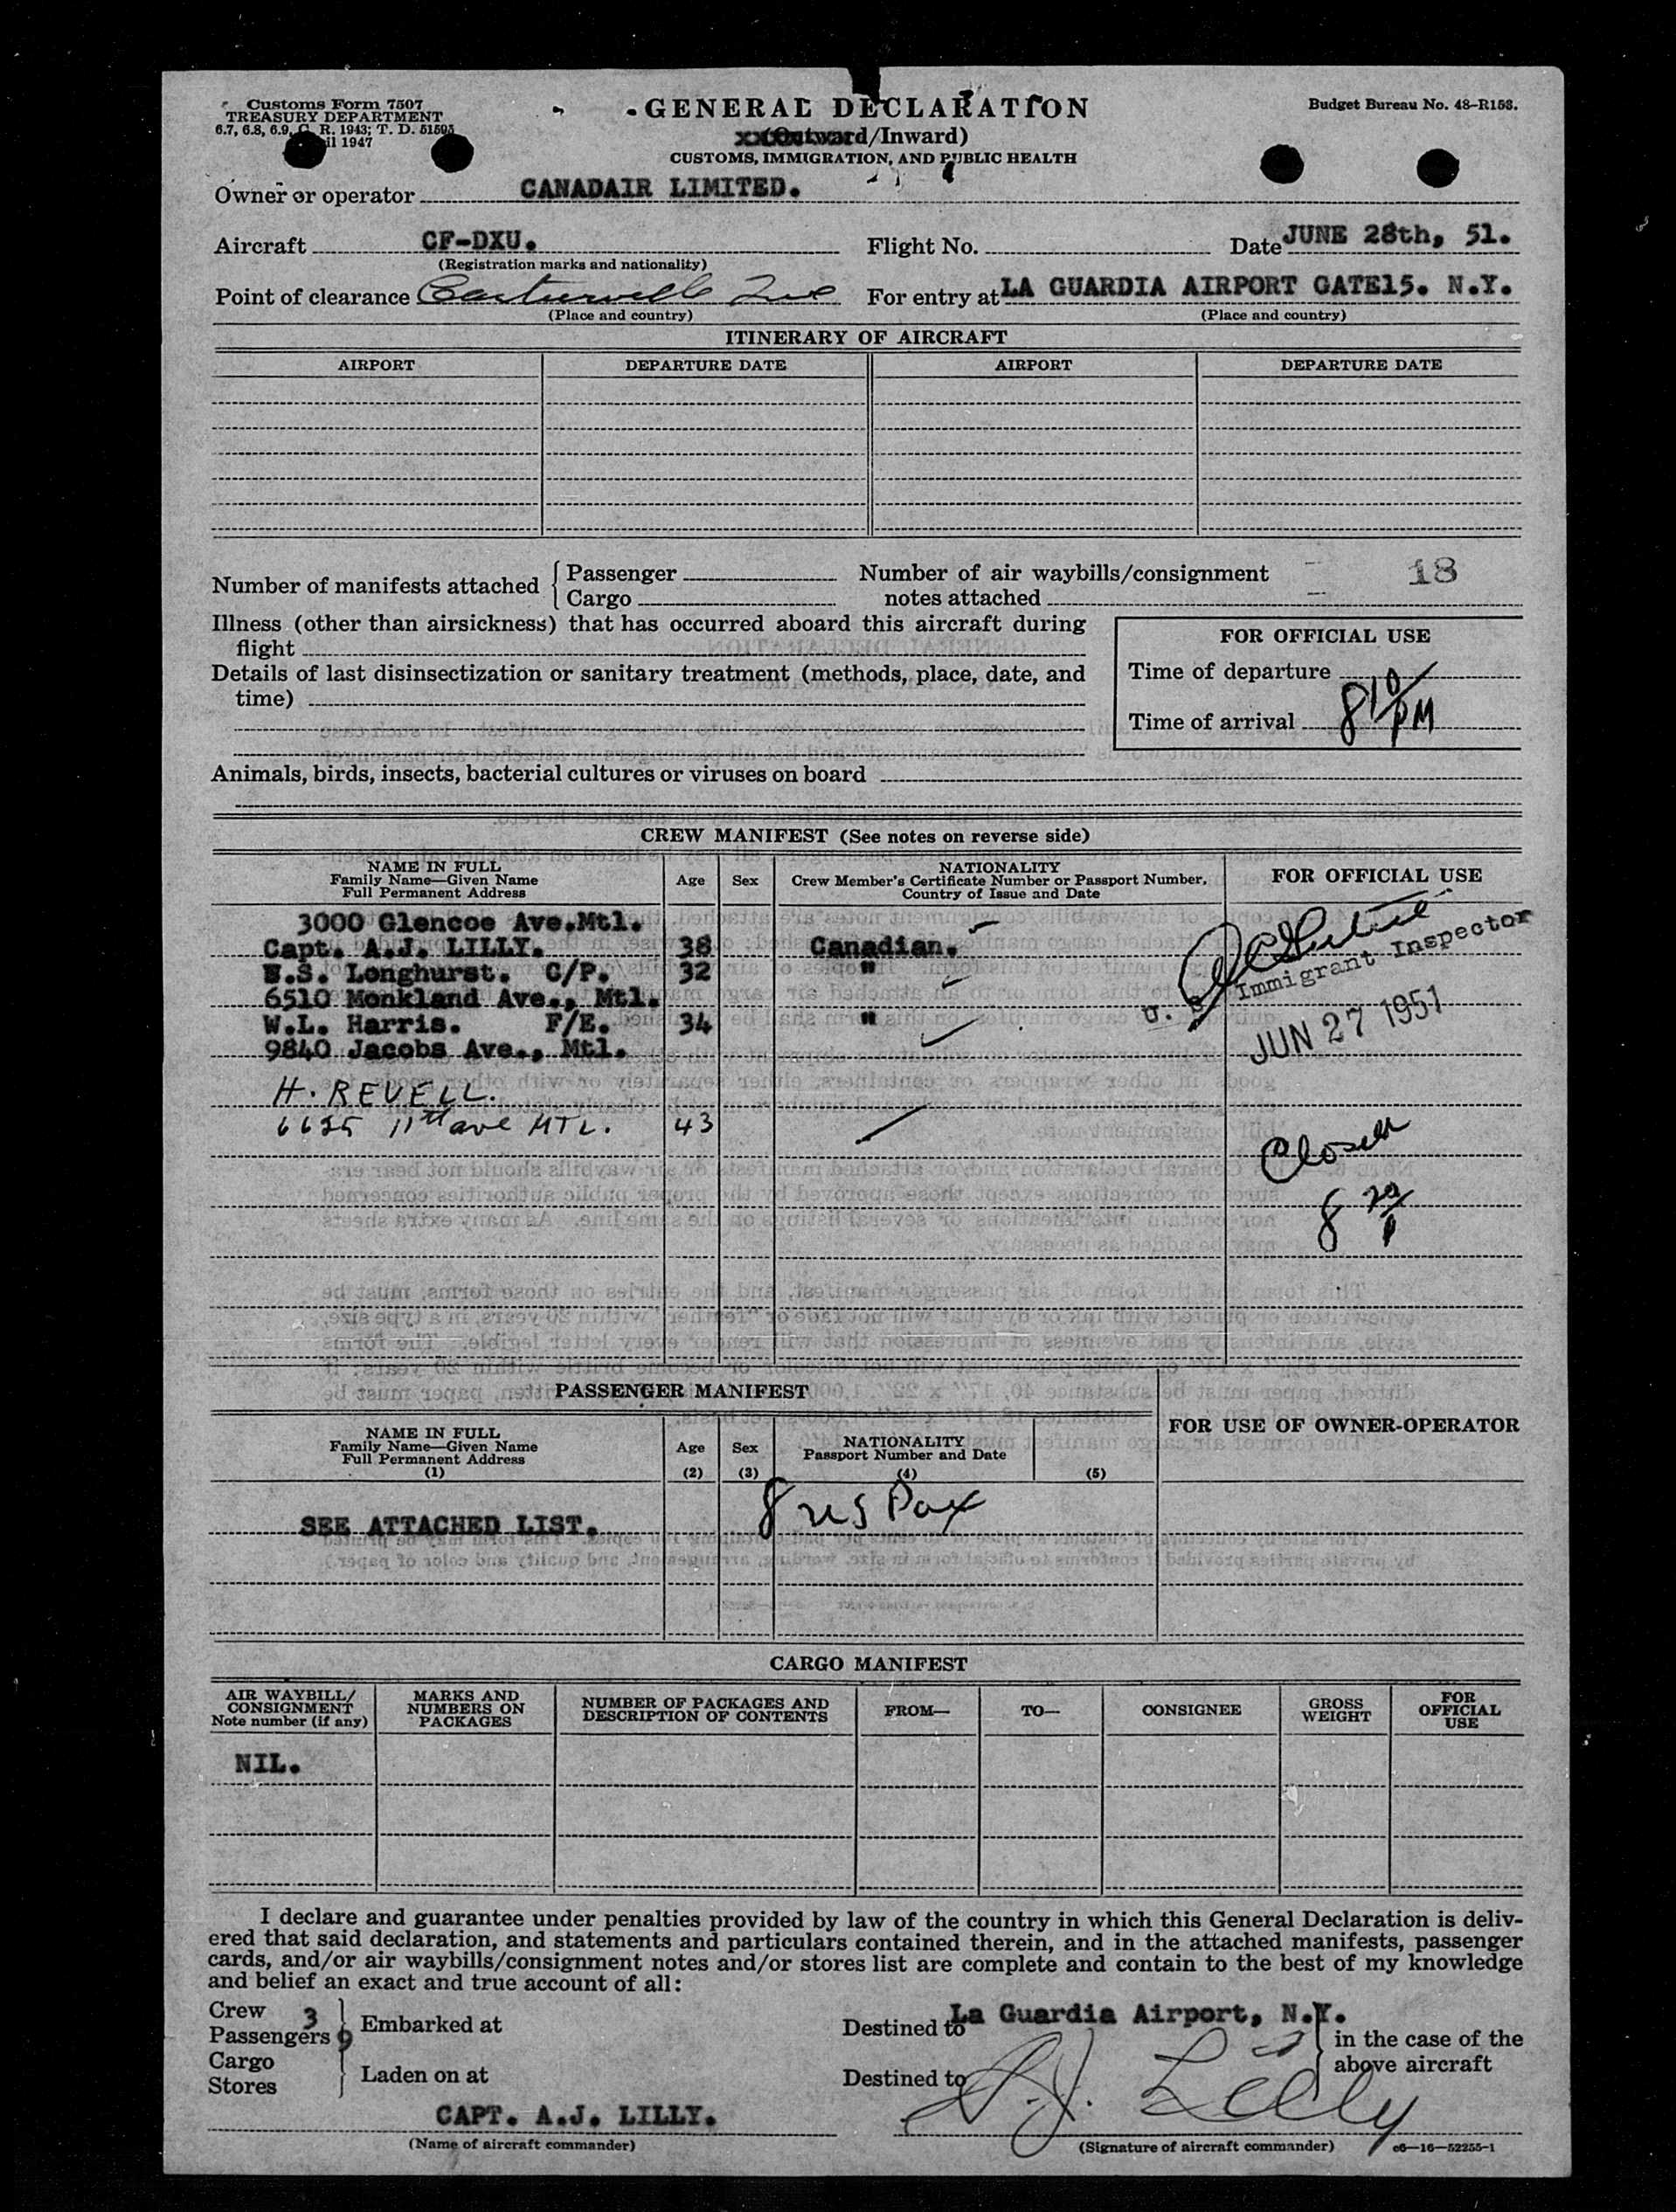 Customs Form 7507
TREASURY DEPARTMENT
6.7, 6.8, 6.9, C. R. 1943; T. D. 51595
1947
GENERAL DECLARATION
(Outward/Inward)
CUSTOMS, IMMIGRATION, AND PUBLIC HEALTH
Budget Bureau No. 48-R153.
Owner or operator CANADAIR LIMITED.
Aircraft CF-DXU. Flight No. Date JUNE 28th, 51.
(Registration marks and nationality)
Point of clearance Cartierville Que For entry at LA GUARDIA AIRPORT GATE15. N.Y.
(Place and country) (Place and country)
ITINERARY OF AIRCRAFT
AIRPORT DEPARTURE DATE AIRPORT DEPARTURE DATE
Number of manifests attached Passenger Number of air waybills/consignment 18
Cargo notes attached
Illness (other than airsickness) that has occurred aboard this aircraft during
flight
Details of last disinsectization or sanitary treatment (methods, place, date, and
time)
FOR OFFICIAL USE
Time of departure
Time of arrival 8 10/PM
Animals, birds, insects, bacterial cultures or viruses on board
CREW MANIFEST (See notes on reverse side)
NAME IN FULL
Family Name—Given Name
Full Permanent Address
Age Sex
NATIONALITY
Crew Member's Certificate Number or Passport Number,
Country of Issue and Date
FOR OFFICIAL USE
3000 Glencoe Ave.Mtl.
Capt. A.J. LILLY. 38 Canadian.
W.S. Longhurst. C/P. 32 "
6510 Monkland Ave., Mtl.
W.L. Harris. F/E. 34 "
9840 Jacobs Ave., Mtl.
U. S. Immigrant Inspector
JUN 27 1951
H. REVELL.
6625 11th ave MTL. 43
Closed
8 20/P
PASSENGER MANIFEST
NAME IN FULL
Family Name—Given Name
Full Permanent Address
(1)
Age
(2)
Sex
(3)
NATIONALITY
Passport Number and Date
(4) (5)
FOR USE OF OWNER-OPERATOR
SEE ATTACHED LIST. 8 US Pax
CARGO MANIFEST
AIR WAYBILL/
CONSIGNMENT
Note number (if any)
MARKS AND
NUMBERS ON
PACKAGES
NUMBER OF PACKAGES AND
DESCRIPTION OF CONTENTS
FROM—
TO—
CONSIGNEE
GROSS
WEIGHT
FOR
OFFICIAL
USE
NIL.
I declare and guarantee under penalties provided by law of the country in which this General Declaration is deliv-
ered that said declaration, and statements and particulars contained therein, and in the attached manifests, passenger
cards, and/or air waybills/consignment notes and/or stores list are complete and contain to the best of my knowledge
and belief an exact and true account of all:
Crew 3
Passengers 9
Embarked at
Destined to La Guardia Airport, N.Y.
Cargo
Stores
Laden on at
Destined to
in the case of the
above aircraft
CAPT. A.J. LILLY.
A.J. Lilly
(Name of aircraft commander)
(Signature of aircraft commander) c6—16—52255-1